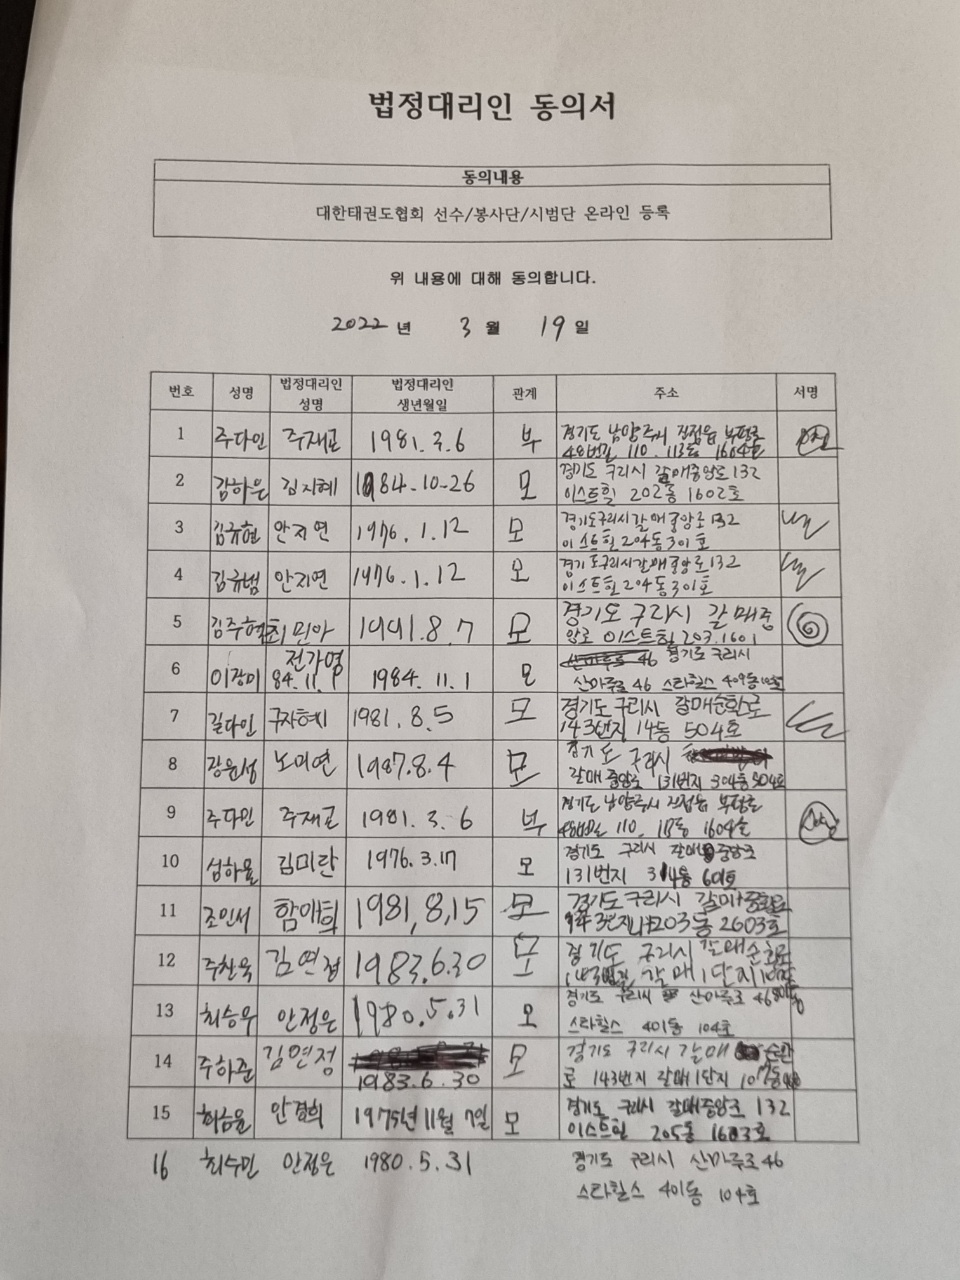 법정대리인 동의서
동의내용
대한태권도협회 선수/봉사단/시범단 온라인 등록
위 내용에 대해 동의합니다.
2022 년 3 월 19 일
번호 성명 법정대리인 성명 법정대리인 생년월일 관계 주소 서명
1 주다인 주재근 1981.3.6 부 경기도 남양주시 진접읍 부평로
48번길 110. 113동 1604호
2 김하은 김지혜 1984-10-26 모 경기도 구리시 갈매중앙로 132
이스트힐 202동 1602호
3 김규현 안지연 1976.1.12 모 경기도구리시갈매중앙로132
이스트힐204동301호
4 김규범 안지연 1976.1.12 모 경기도구리시갈매중앙로132
이스트힐204동301호
5 김주혁 최민아 1991.8.7 모 경기도 구리시 갈매중
앙로 이스트힐 203.1601
6 이장미 전가영 84.11.1 1984.11.1 모 46 경기도 구리시
산마루로 46 스타힐스 409동
7 길다인 구자혜 1981.8.5 모 경기도 구리시 갈매순환로
143번지 14동 504호
8 장윤성 노미연 1987.8.4 모 경기도 구리시
갈매 중앙로 131번지 304동 504호
9 주다인 주재근 1981.3.6 부 경기도 남양주시 진접읍 부평로
48번길 110. 113동 1604호
10 섬하율 김미란 1976.3.17 모 경기도 구리시 갈매중앙로
131번지 314동 601호
11 조인서 함애희 1981,8,15 모 경기도 구리시 갈매순환로
203동 2603호
12 주찬욱 김연정 1983.6.30 모 경기도 구리시 갈매순환로
143번지 갈매1단지
13 최승우 안정은 1980.5.31 모 경기도 구리시 산마루로 46
스타힐스 401동 104호
14 주하준 김연정 1983.6.30 모 경기도 구리시 갈매 순환
로 143번지 갈매1단지
15 허승율 안경희 1975년 11월 7일 모 경기도 구리시 갈매중앙로 132
이스트힐 205동 1603호
16 최수민 안정은 1980.5.31 경기도 구리시 산마루로 46
스타힐스 401동 104호